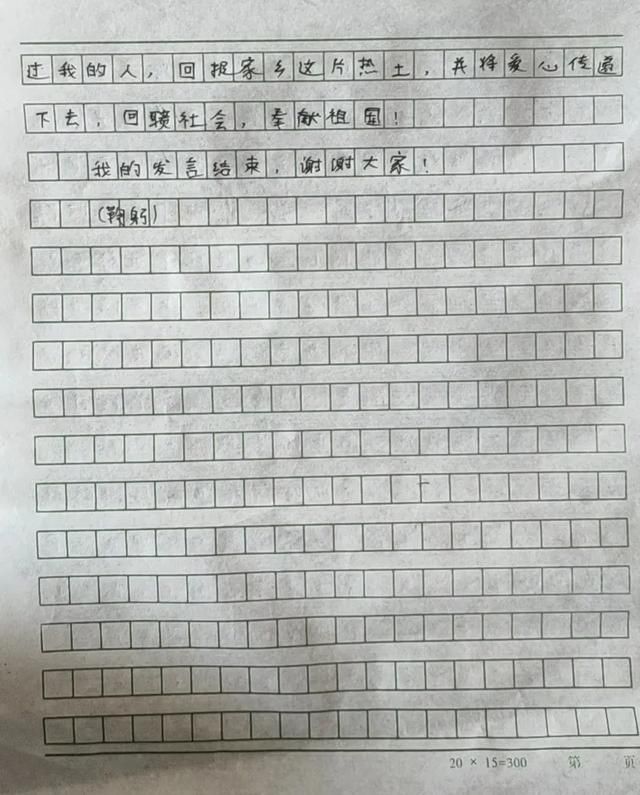 过我的人，回报家乡这片热土，并将爱心传递
下去，回馈社会，奉献祖国！
我的发言结束，谢谢大家！
（鞠躬）
20 × 15=300 第 页